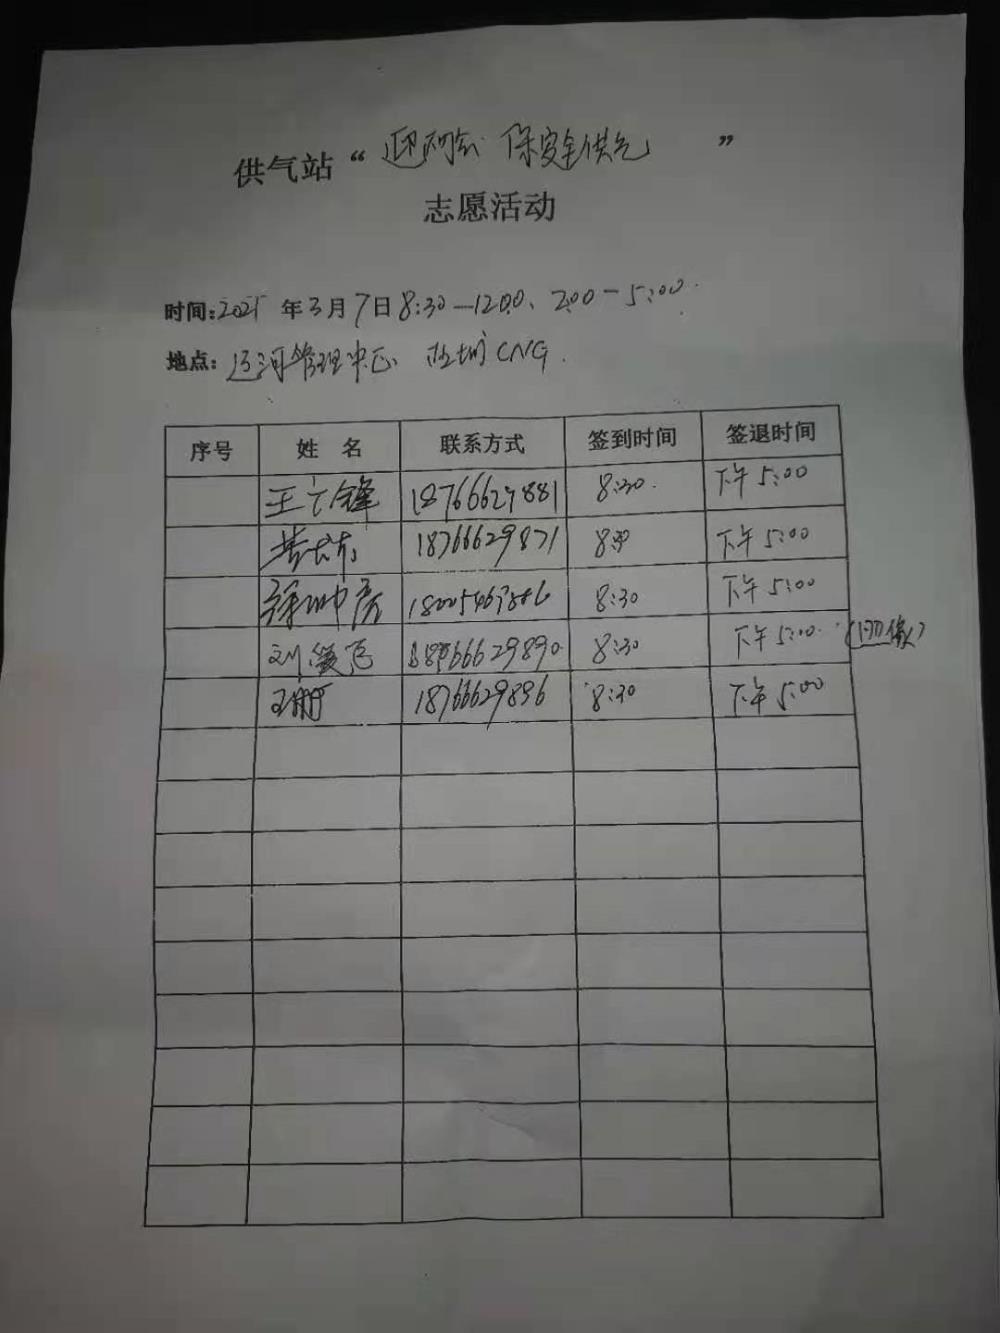 供气站“迎两会 保安全供气”
志愿活动
时间:2021年3月7日8:30—12:00、2:00—5:00.
地点:运河管理中心 CNG.
序号 姓名 联系方式 签到时间 签退时间
王 锋 18766629881 8:30. 下午5:00
18766629871 8:30 下午5:00
8:30 下午5:00
刘 飞 18766629890 8:30 下午5:00.
王珊 18766629896 8:30 下午5:00